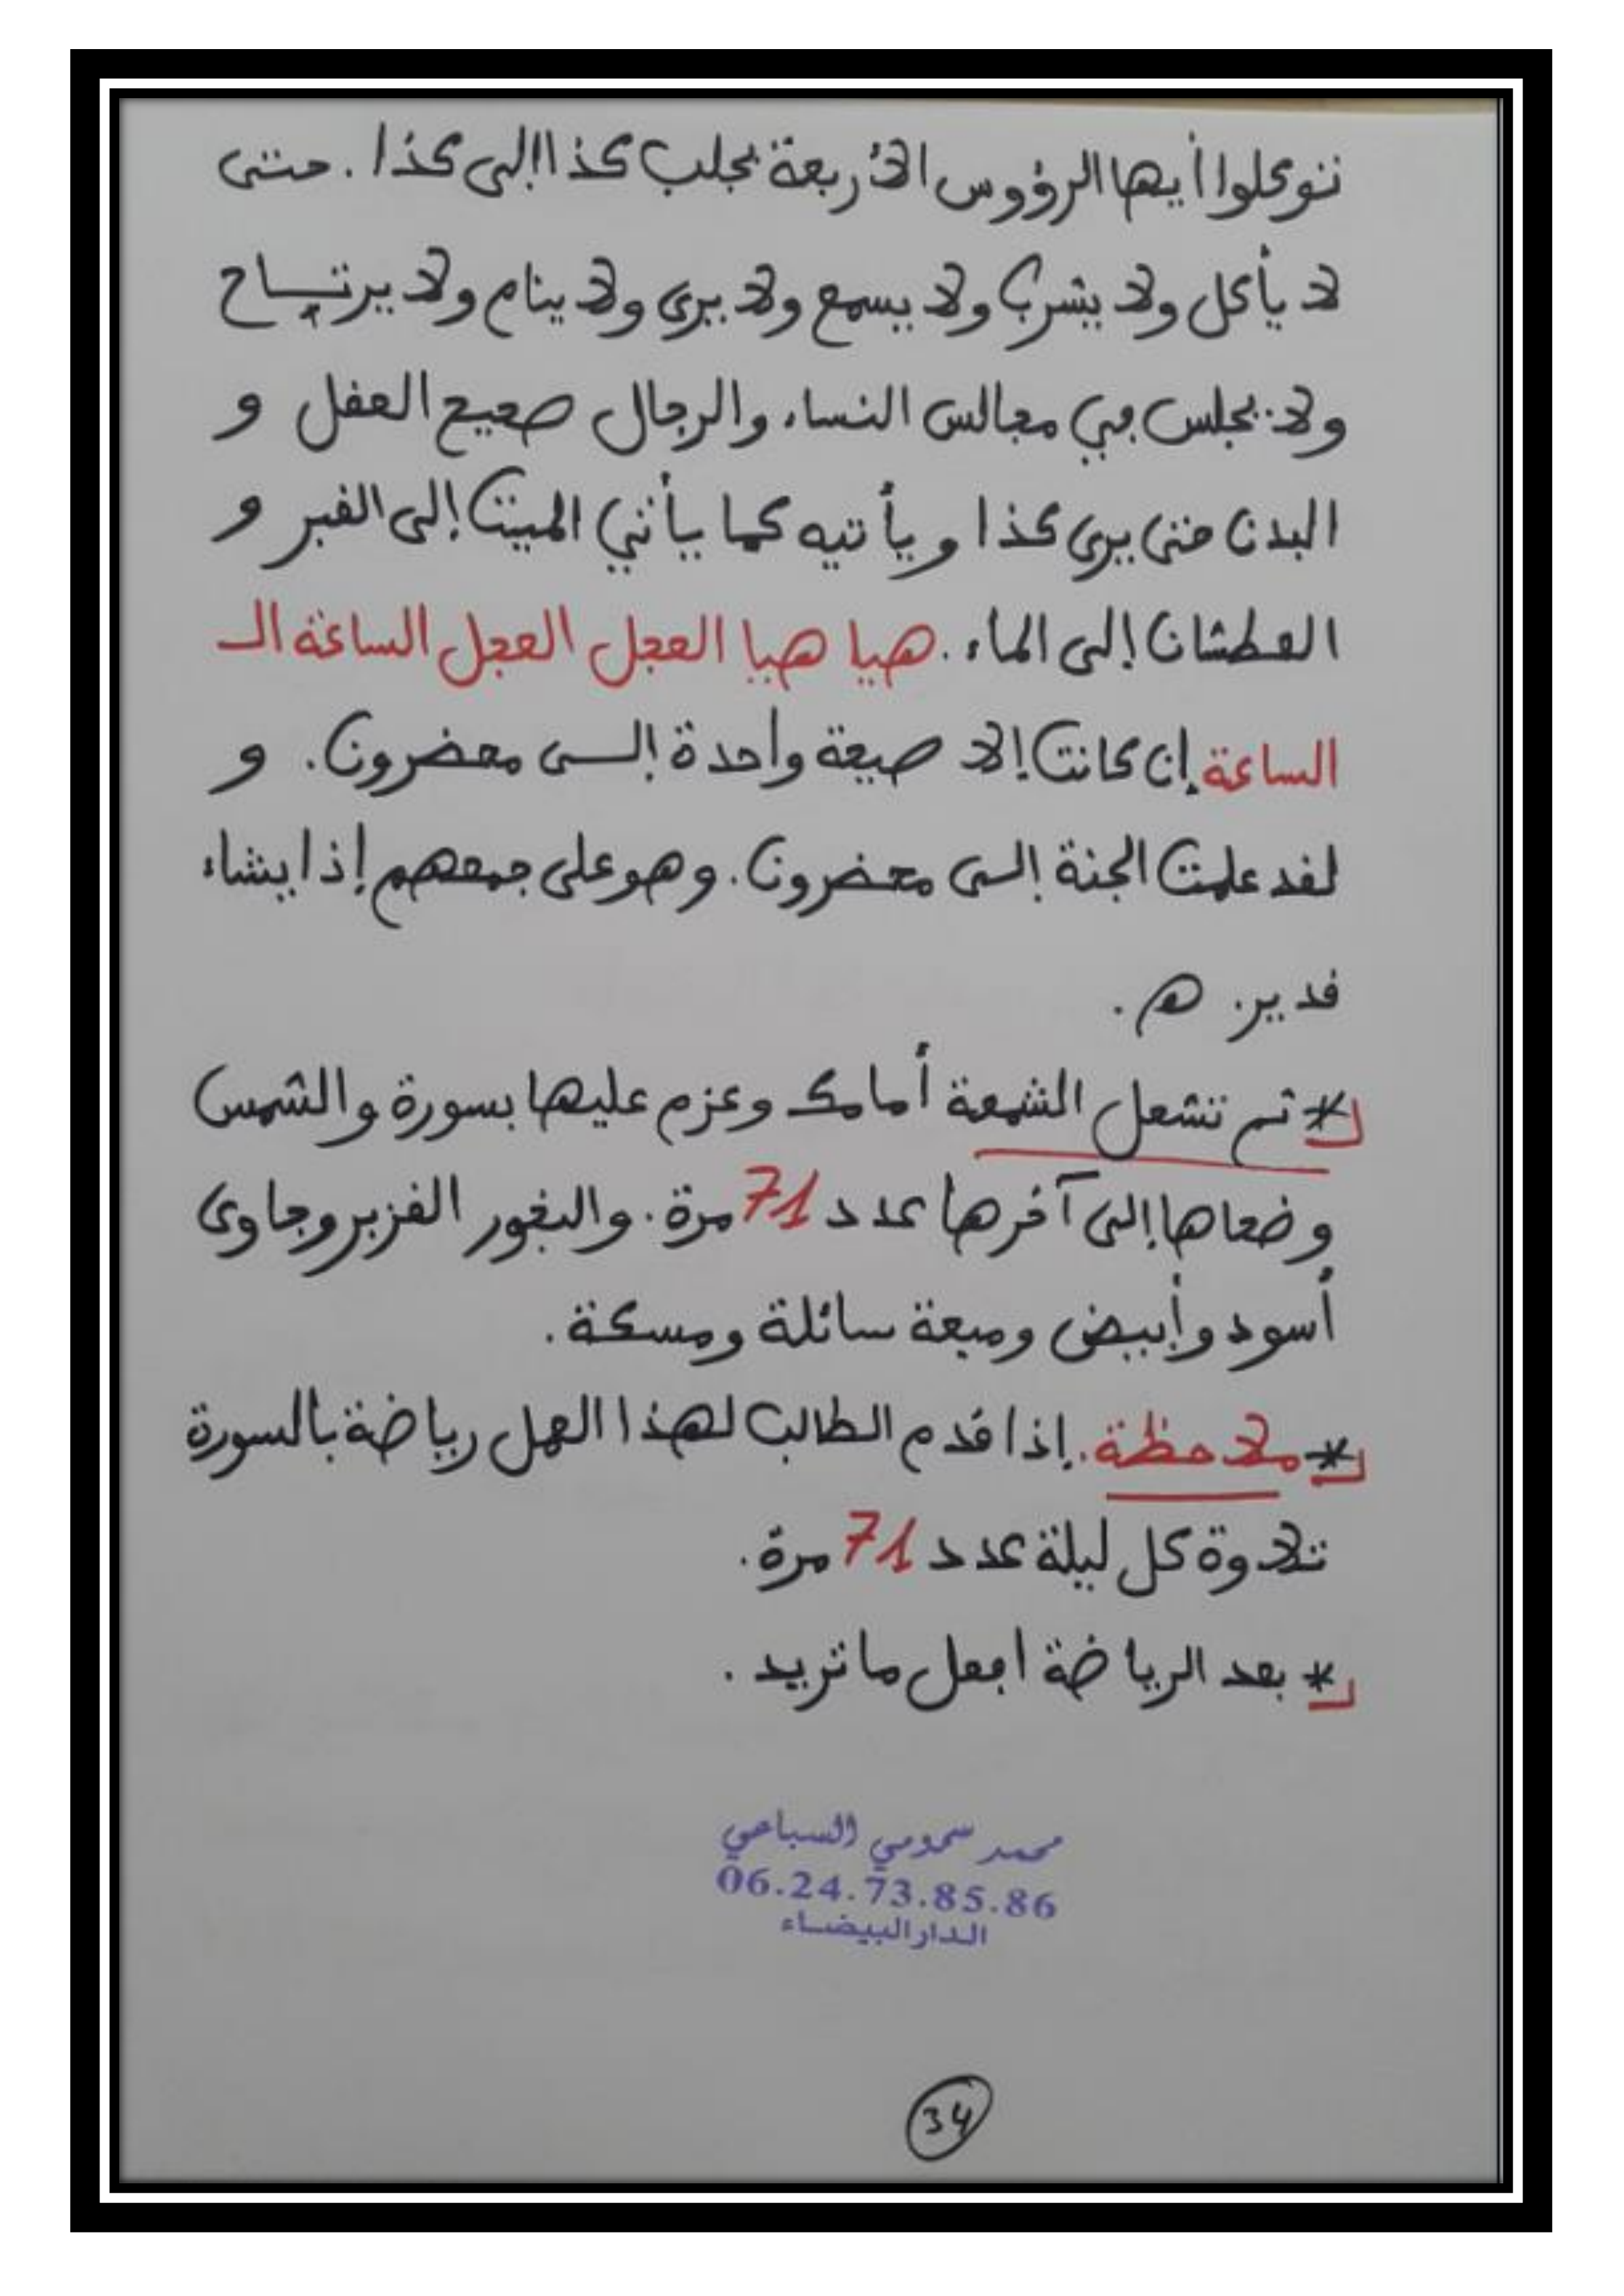 تتوكلوا أيها الرؤوس الأربعة بجلب كذا إلى كذا . حتى
لا يأكل ولا يشرب ولا يسمع ولا يرى ولا ينام ولا يرتـــاح
ولا يجلس في مجالس النساء والرجال صحيح العقل و
البدن حتى يرى كذا ويأتيه كما يأتي الميت إلى القبر و
العطشان إلى الماء . هيا هيا العجل العجل الساعة الـ
الساعة إن كانت إلا صيحة واحدة إلـــى محضرون . و
لقد علمت الجنة إلى محضرون . وهو على جمعهم إذا يشاء
قدير . هـ .
* تم تشعل الشمعة أمامك وعزم عليها بسورة والشمس
وضحاها إلى آخرها عدد 71 مرة . والبخور الفزبر وجاوى
أسود وأبيض وميعة سائلة ومسكة .
* ملاحظة . إذا قدم الطالب لهذا العمل رياضة بالسورة
تلاوة كل ليلة عدد 71 مرة .
* بعد الرياضة افعل ما تريد .
محمد سمومي السباعي
06.24.73.85.86
الدار البيضاء
34